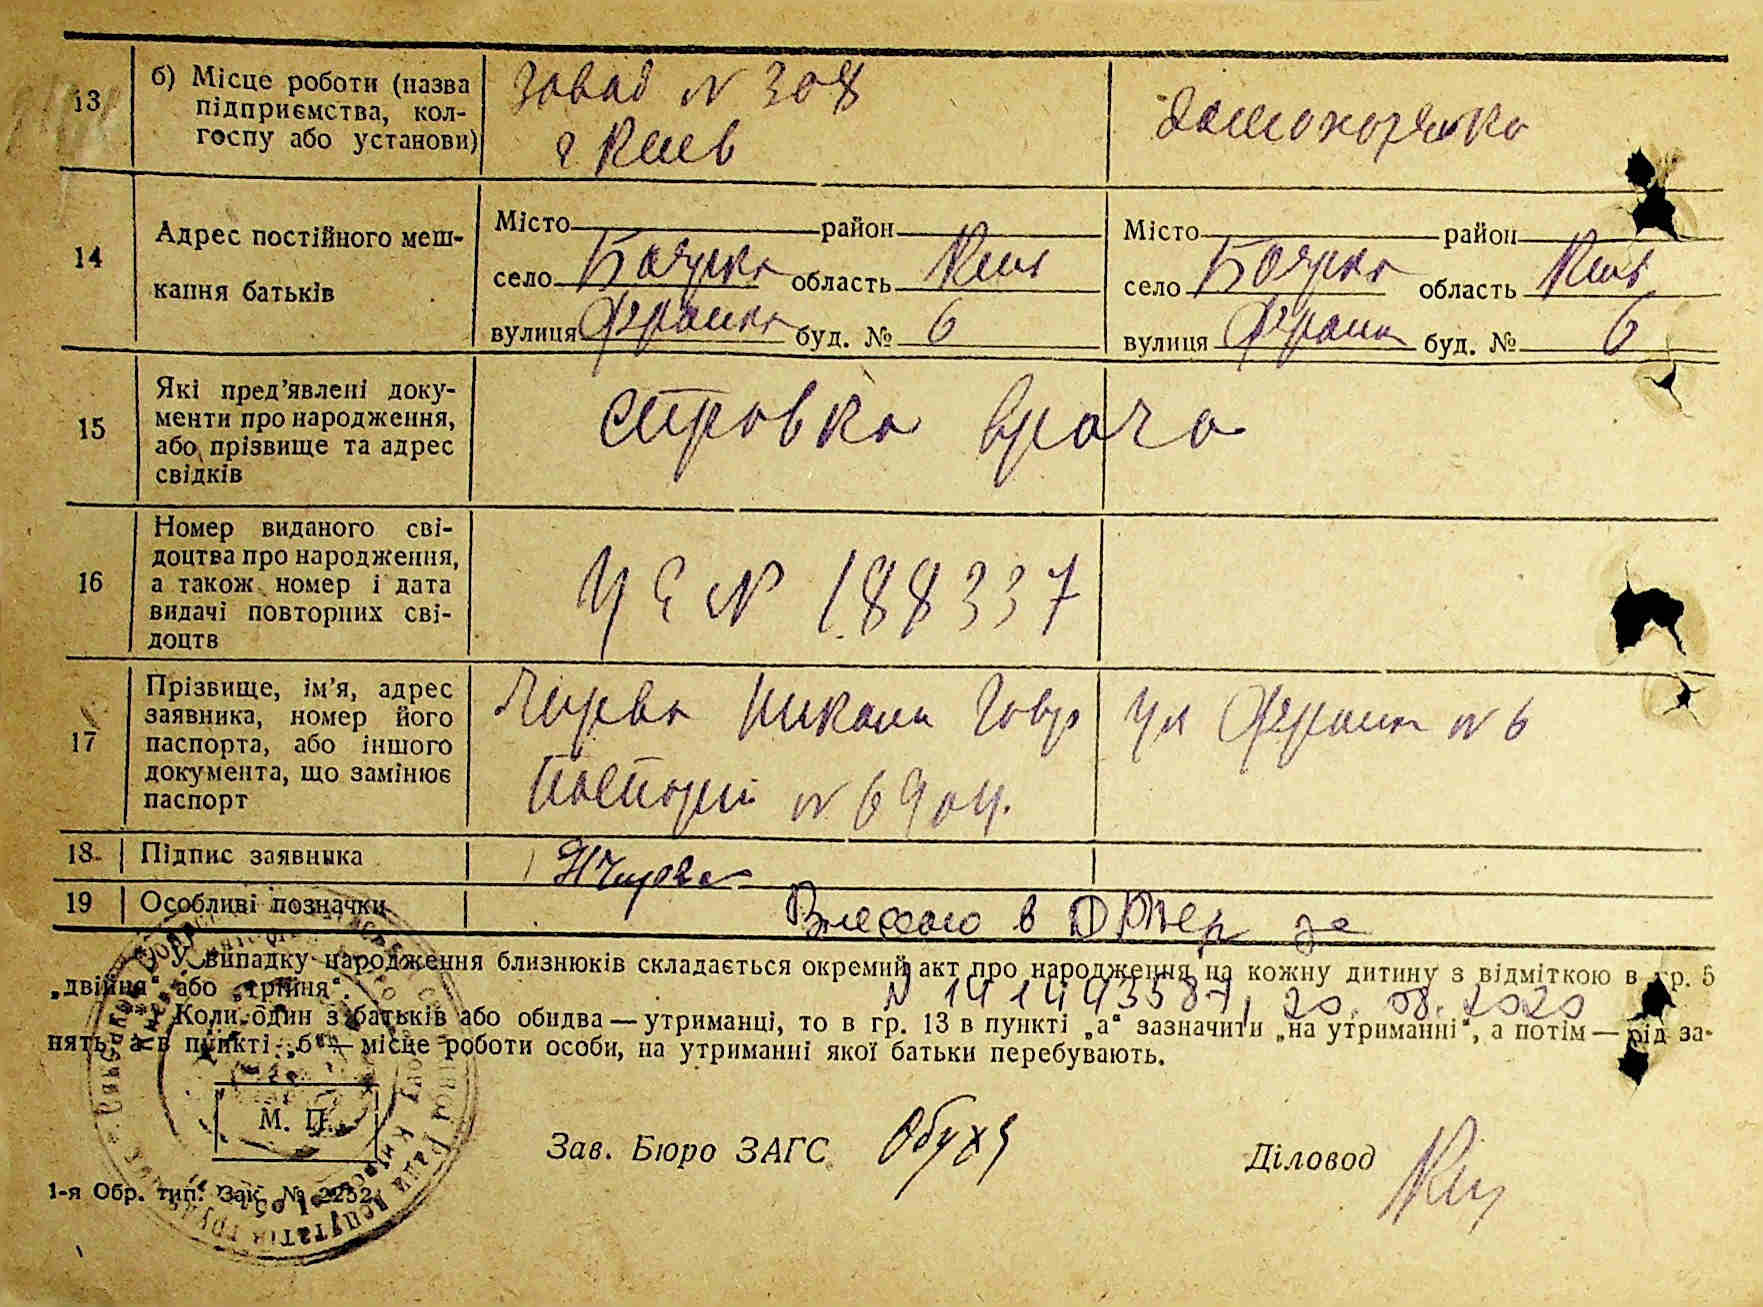 13 б) Місце роботи (назва підприємства, колгоспу або установи)
завод N 308
г Киев
домохозяйка
14 Адрес постійного мешкання батьків
Місто район
село Боярка область Киев
вулиця Франка буд. № 6
Місто район
село Боярка область Киев
вулиця Франка буд. № 6
15 Які пред’явлені документи про народження, або прізвище та адрес свідків
справка врача
16 Номер виданого свідоцтва про народження, а також номер і дата видачі повторних свідоцтв
ЧЕ N 188337
17 Прізвище, ім’я, адрес заявника, номер його паспорта, або іншого документа, що замінює паспорт
Чирва Никола Гавр
ул Франка N 6
паспорт N 6904
18 Підпис заявника
НЧирва
19 Особливі позначки
Внесено в ДРАЦС за
N 20.08.2020
У випадку народження близнюків складається окремий акт про народження на кожну дитину з відміткою в гр. 5
„двійня“ або „трійня“.
Коли один з батьків або обидва — утриманці, то в гр. 13 в пункті „а“ зазначити „на утриманні“, а потім — рід за-
нять, а в пункті „б“ — місце роботи особи, на утриманні якої батьки перебувають.
М. П.
Зав. Бюро ЗАГС
Діловод
1-я Обр. тип. Зак. № 2252